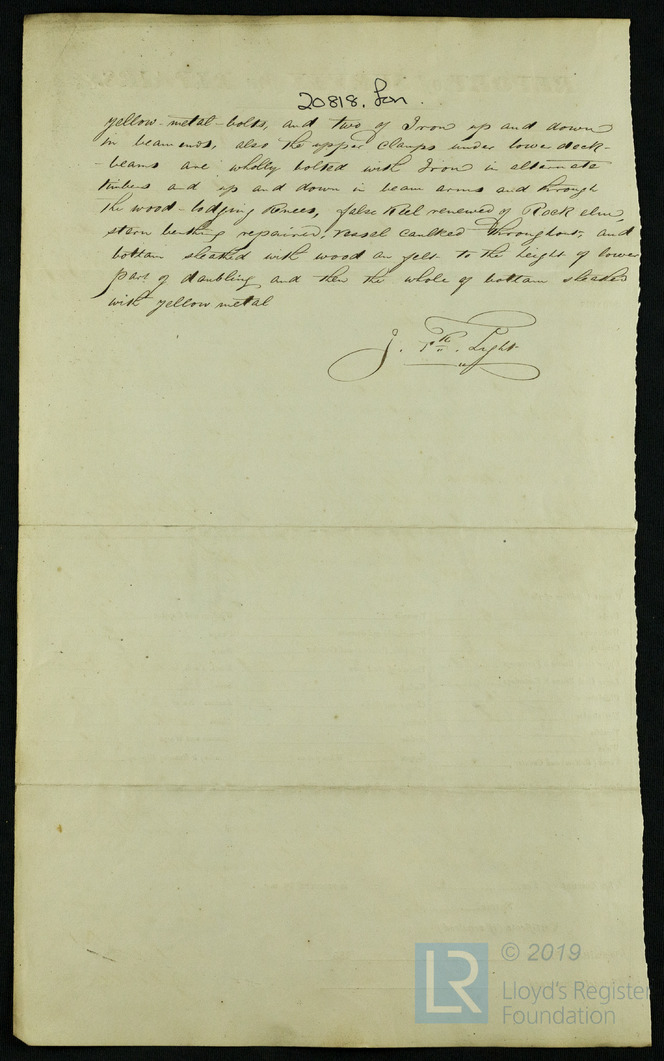 20818. Lon.
yellow-metal-bolts, and two of Iron up and down
in beam ends, also the upper clamps under lower deck-
-beams are wholly bolted with Iron in alternate
timbers and up and down in beam arms and through
the wood-lodging Knees, false Keel renewed of Rock elm,
stern berthing repaired, vessel caulked throughout, and
bottom sleathed with wood on felt to the height of lower
part of doubling and then the whole of bottom sleathed
with yellow metal
J. Light
LR
© 2019
Lloyd's Register
Foundation